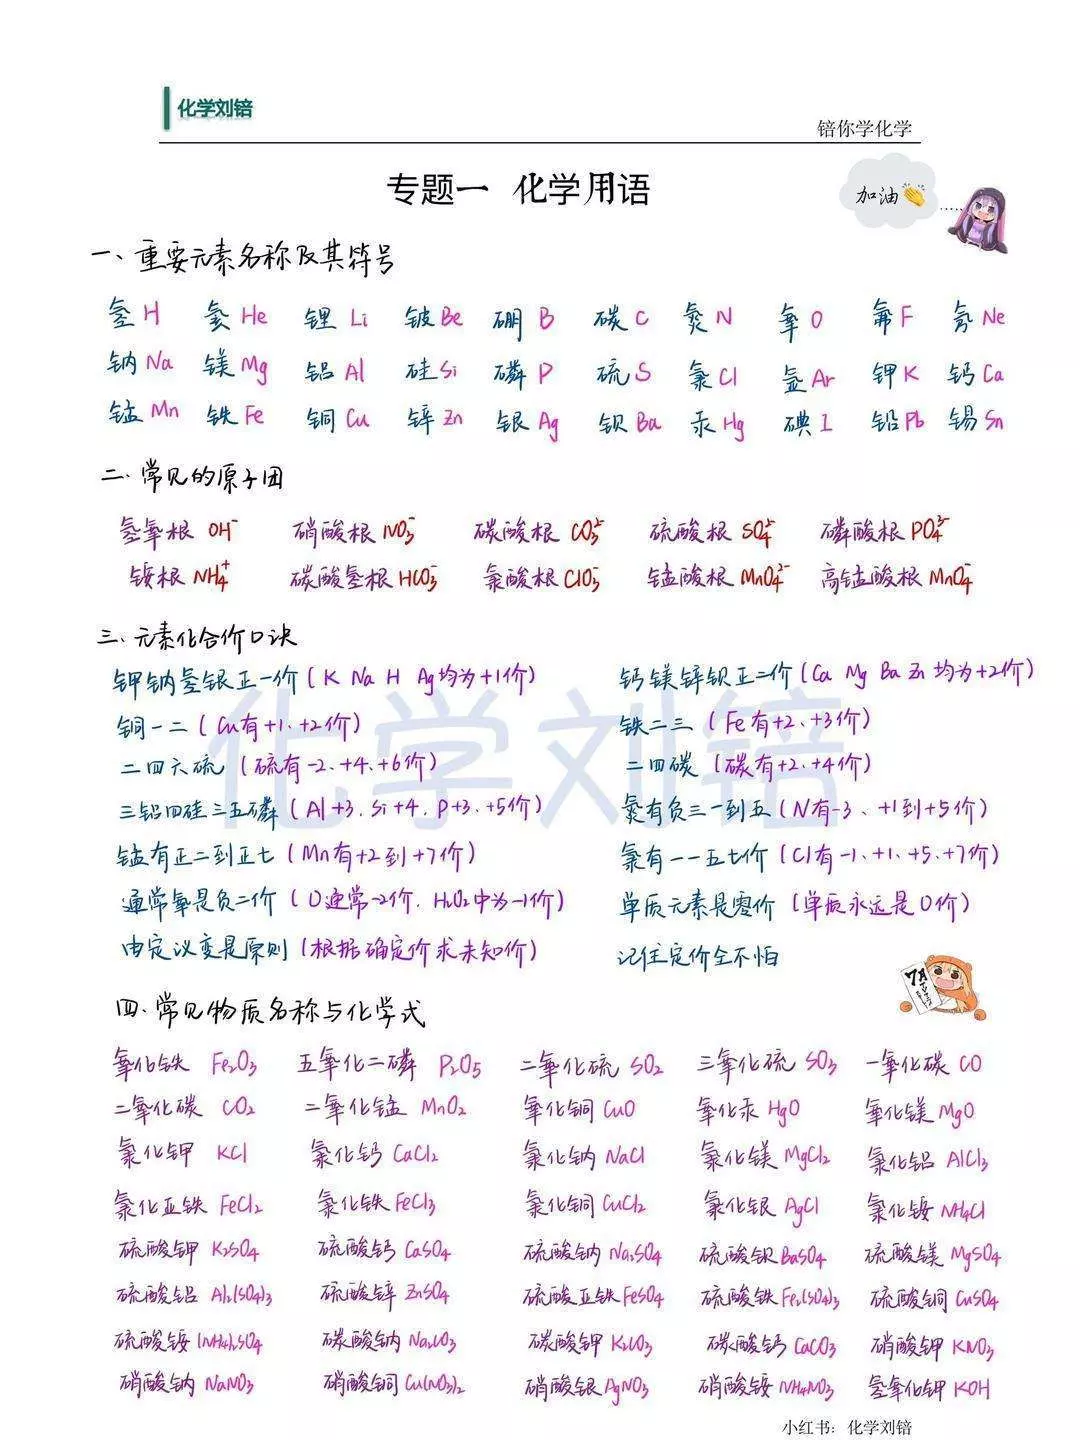 化学刘锫
锫你学化学
专题一 化学用语
加油
一、重要元素名称及其符号
氢 H 氦 He 锂 Li 铍 Be 硼 B 碳 C 氮 N 氧 O 氟 F 氖 Ne
钠 Na 镁 Mg 铝 Al 硅 Si 磷 P 硫 S 氯 Cl 氩 Ar 钾 K 钙 Ca
锰 Mn 铁 Fe 铜 Cu 锌 Zn 银 Ag 钡 Ba 汞 Hg 碘 I 铅 Pb 锡 Sn
二、常见的原子团
氢氧根 OH⁻ 硝酸根 NO₃⁻ 碳酸根 CO₃²⁻ 硫酸根 SO₄²⁻ 磷酸根 PO₄³⁻
铵根 NH₄⁺ 碳酸氢根 HCO₃⁻ 氯酸根 ClO₃⁻ 锰酸根 MnO₄²⁻ 高锰酸根 MnO₄⁻
三、元素化合价口诀
钾钠氢银正一价(K Na H Ag均为+1价) 钙镁锌钡正二价(Ca Mg Ba Zn 均为+2价)
铜一二(Cu有+1、+2价) 铁二三(Fe有+2、+3价)
二四六硫(硫有-2、+4、+6价) 二四碳(碳有+2、+4价)
三铝四硅三五磷(Al+3、Si+4、P+3、+5价) 氮有负三一到五(N有-3、+1到+5价)
锰有正二到正七(Mn有+2到+7价) 氯有一一五七价(Cl有-1、+1、+5、+7价)
通常氧是负二价(O通常-2价,H₂O₂中为-1价) 单质元素是零价(单质永远是0价)
由定议变是原则(根据确定价求未知价) 记住定价全不怕
四、常见物质名称与化学式
氧化铁 Fe₂O₃ 五氧化二磷 P₂O₅ 二氧化硫 SO₂ 三氧化硫 SO₃ 一氧化碳 CO
二氧化碳 CO₂ 二氧化锰 MnO₂ 氧化铜 CuO 氧化汞 HgO 氧化镁 MgO
氯化钾 KCl 氯化钙 CaCl₂ 氯化钠 NaCl 氯化镁 MgCl₂ 氯化铝 AlCl₃
氯化亚铁 FeCl₂ 氯化铁 FeCl₃ 氯化铜 CuCl₂ 氯化银 AgCl 氯化铵 NH₄Cl
硫酸钾 K₂SO₄ 硫酸钙 CaSO₄ 硫酸钠 Na₂SO₄ 硫酸钡 BaSO₄ 硫酸镁 MgSO₄
硫酸铝 Al₂(SO₄)₃ 硫酸锌 ZnSO₄ 硫酸亚铁 FeSO₄ 硫酸铁 Fe₂(SO₄)₃ 硫酸铜 CuSO₄
硫酸铵 (NH₄)₂SO₄ 碳酸钠 Na₂CO₃ 碳酸钾 K₂CO₃ 碳酸钙 CaCO₃ 硝酸钾 KNO₃
硝酸钠 NaNO₃ 硝酸铜 Cu(NO₃)₂ 硝酸银 AgNO₃ 硝酸铵 NH₄NO₃ 氢氧化钾 KOH
小红书：化学刘锫
化学刘锫